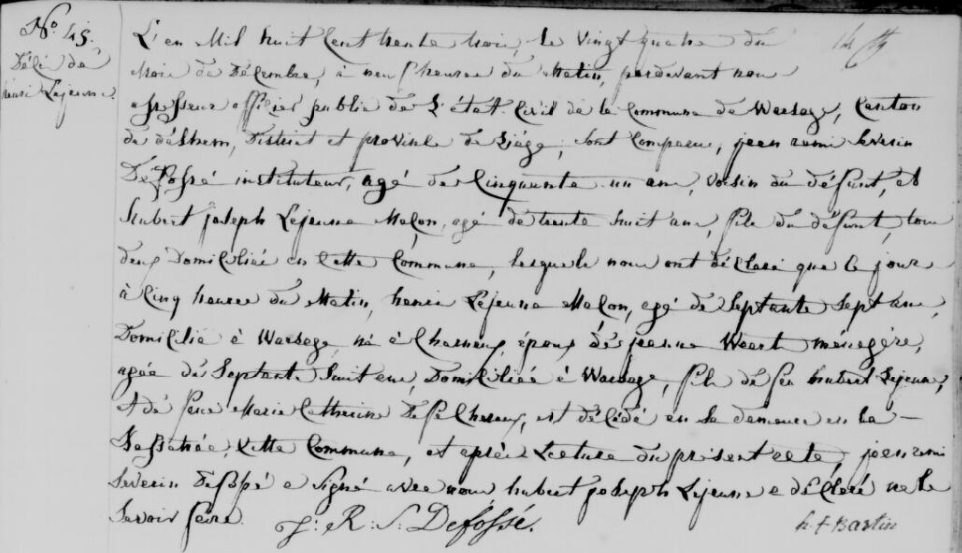 N.º 45.
Décè de
henri Lejeune.
L'en Mil huit Cent trente trois, le vingt quatre du
mois de Décembre, à neuf heures du Matin, pardevant nous
officier public de l'état Civil de la Commune de Warsage, Canton
de d'alhem, District et province de Liége, sont Comparu, jean remi Severin
Defossé instituteur, agé de Cinquante un ans, voisin du défunt, et
hubert joseph Lejeune Maçon, agé de trente huit ans, fils du défunt, tous
deux Domiciliés en Cette Commune, lesquels nous ont déclaré que le jour
à Cinq heures du Matin, henri Lejeune Maçon, agé de Septante Sept ans,
Domicilié à Warsage, né à Charneux, époux de jeanne Weert ménagère,
agée de Septante huit ans, Domiciliée à Warsage, fils de feu hubert Lejeune,
et de feue Marie Catherine, est décédé en sa demeure en la
Cette Commune, et après Lecture du présent acte, jean remi
Severin Defossé a Signé avec nous, hubert joseph Lejeune a déClaré ne le
Savoir faire.
J: R: S: Defossé.
h f Bastin